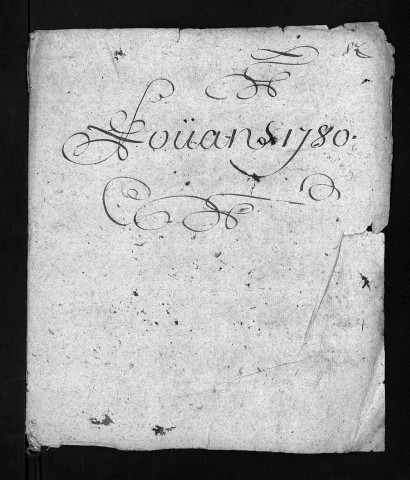 Loüans 1780.